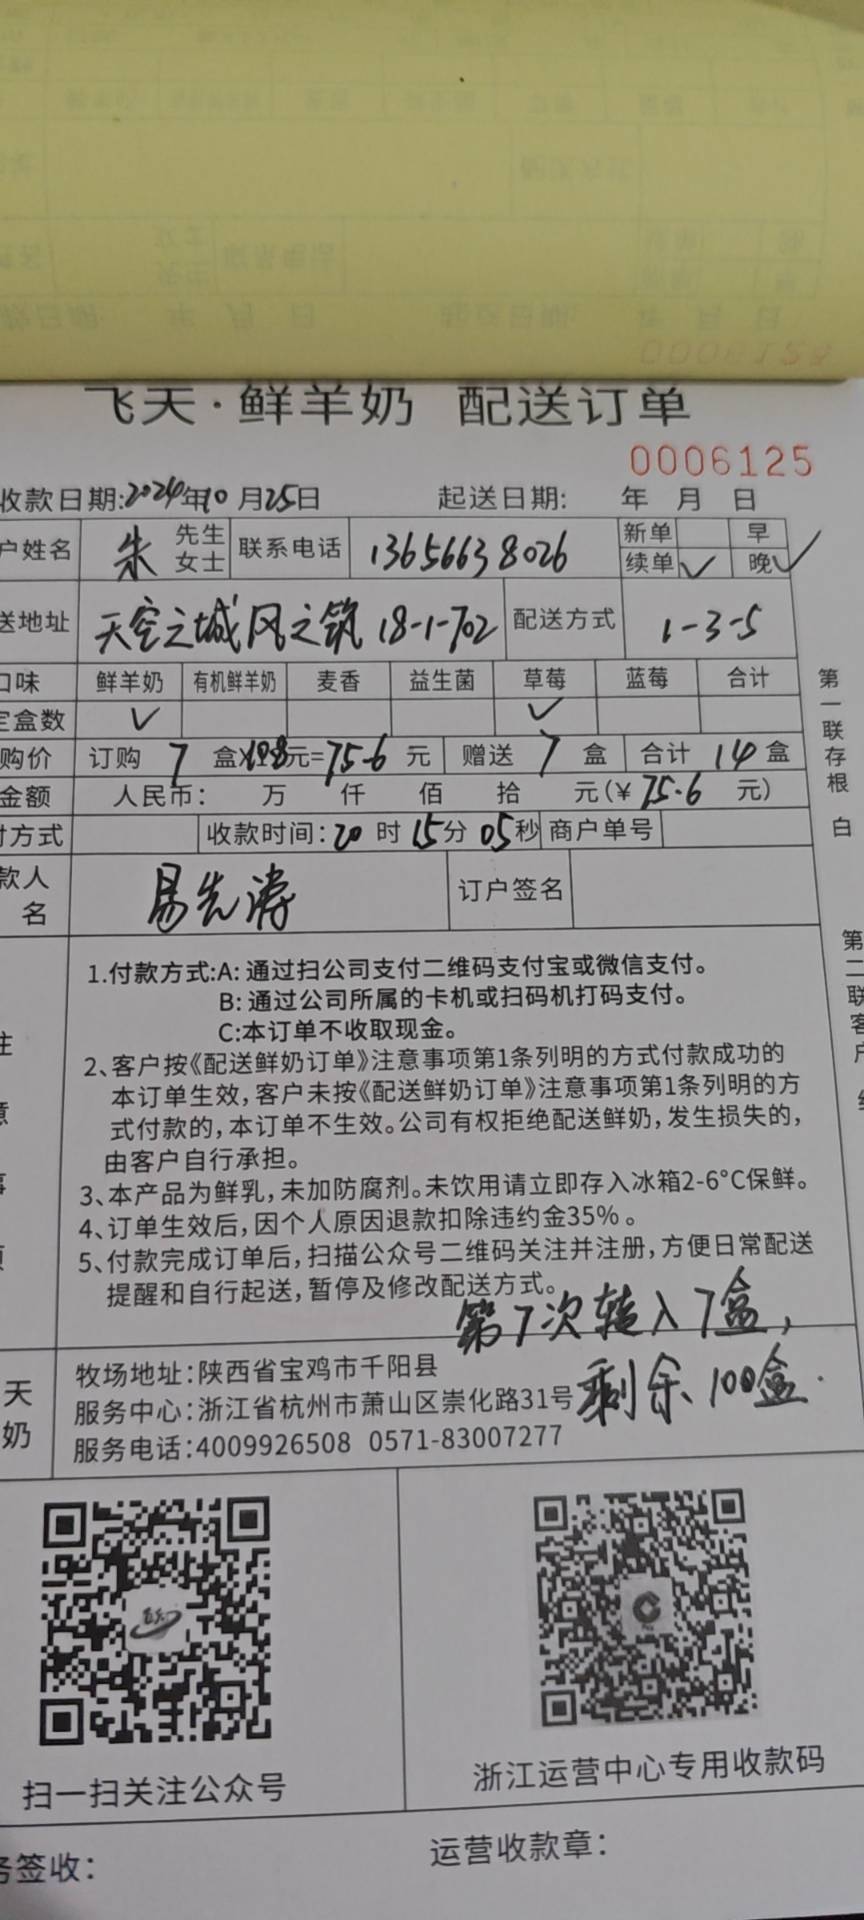 飞天·鲜羊奶 配送订单
0006125
收款日期:2024年10月25日 起送日期: 年 月 日
户姓名 朱 先生 女士 联系电话 13656638026 新单 早
续单✓ 晚✓
送地址 天空之城风之筑 18-1-702 配送方式 1-3-5
口味 鲜羊奶 有机鲜羊奶 麦香 益生菌 草莓 蓝莓 合计
定盒数 ✓ ✓
购价 订购 7 盒×10.8元=75.6元 赠送 7 盒 合计 14 盒
金额 人民币: 万 仟 佰 拾 元(¥ 75.6 元)
付方式 收款时间:20时15分05秒 商户单号
款人
名 易先涛 订户签名
第一联存根 白
第二联客户
注
意
事
项
1.付款方式:A:通过扫公司支付二维码支付宝或微信支付。
B:通过公司所属的卡机或扫码机打码支付。
C:本订单不收取现金。
2、客户按《配送鲜奶订单》注意事项第1条列明的方式付款成功的
本订单生效,客户未按《配送鲜奶订单》注意事项第1条列明的方
式付款的,本订单不生效。公司有权拒绝配送鲜奶,发生损失的,
由客户自行承担。
3、本产品为鲜乳,未加防腐剂。未饮用请立即存入冰箱2-6°C保鲜。
4、订单生效后,因个人原因退款扣除违约金35%。
5、付款完成订单后,扫描公众号二维码关注并注册,方便日常配送
提醒和自行起送,暂停及修改配送方式。
第7次转入7盒,
剩余100盒.
天
奶
牧场地址:陕西省宝鸡市千阳县
服务中心:浙江省杭州市萧山区崇化路31号
服务电话:4009926508 0571-83007277
扫一扫关注公众号
浙江运营中心专用收款码
务签收:
运营收款章: